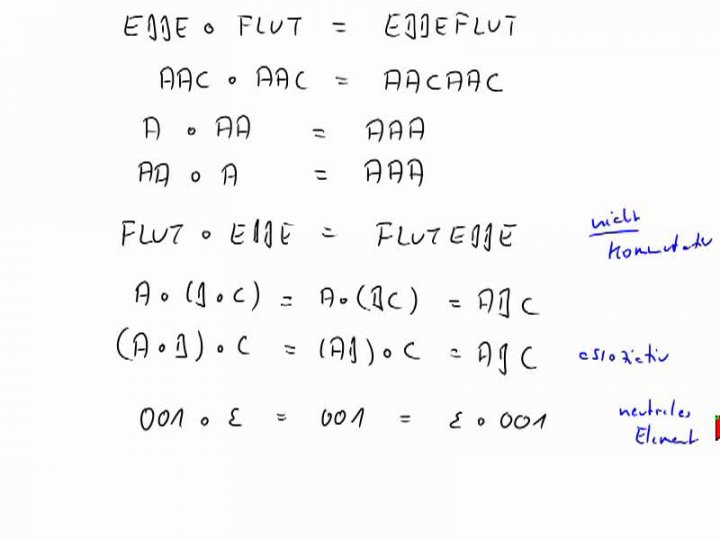 EBBE ∘ FLUT = EBBEFLUT
AAC ∘ AAC = AACAAC
A ∘ AA = AAA
AA ∘ A = AAA
FLUT ∘ EBBE = FLUTEBBE nicht
kommutativ
A ∘ (B ∘ C) = A ∘ (BC) = ABC
(A ∘ B) ∘ C = (AB) ∘ C = ABC assoziativ
001 ∘ ε = 001 = ε ∘ 001 neutrales
Element